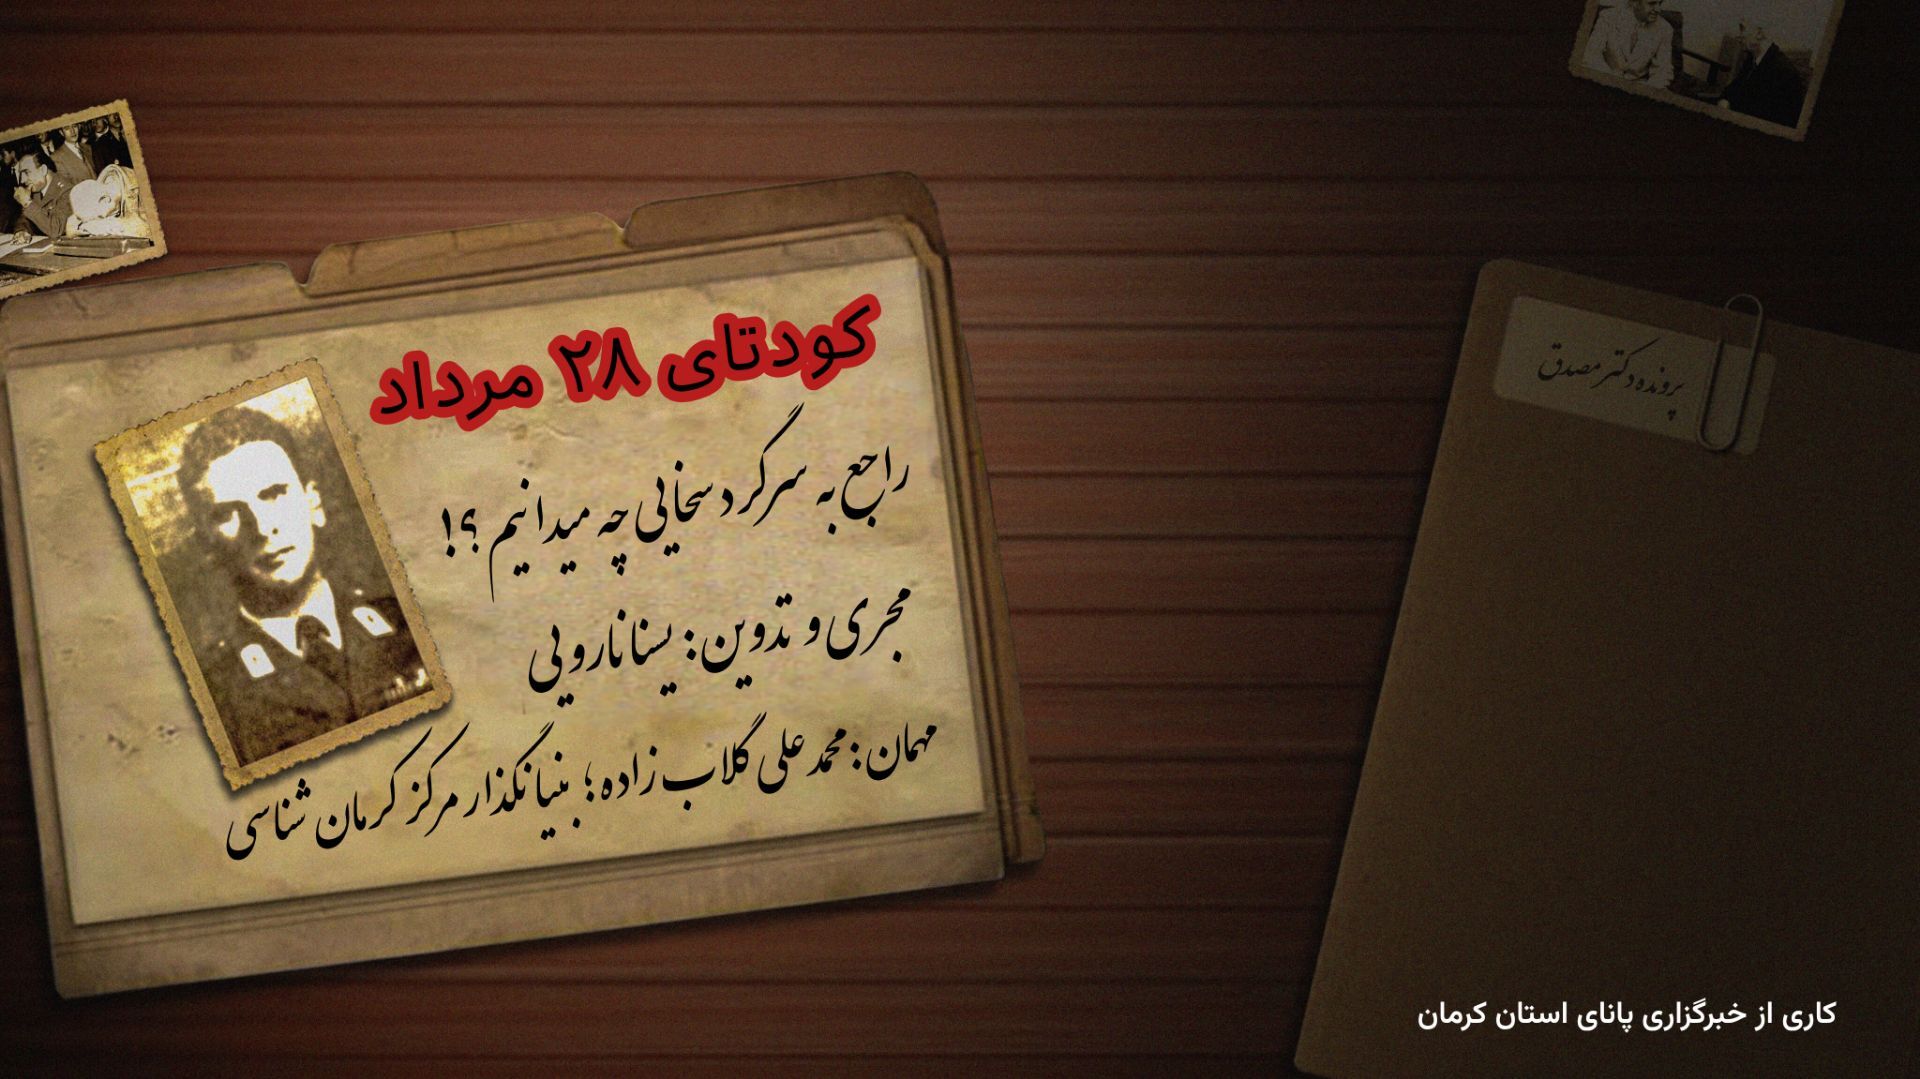 کودتای ۲۸ مرداد
راجع به سرگرد سخایی چه میدانیم ؟!
مجری و تدوین: یسنا نارویی
مهمان: محمد علی گلاب زاده؛ بنیانگذار مرکز کرمان شناسی
پرونده دکتر مصدق
کاری از خبرگزاری پانای استان کرمان